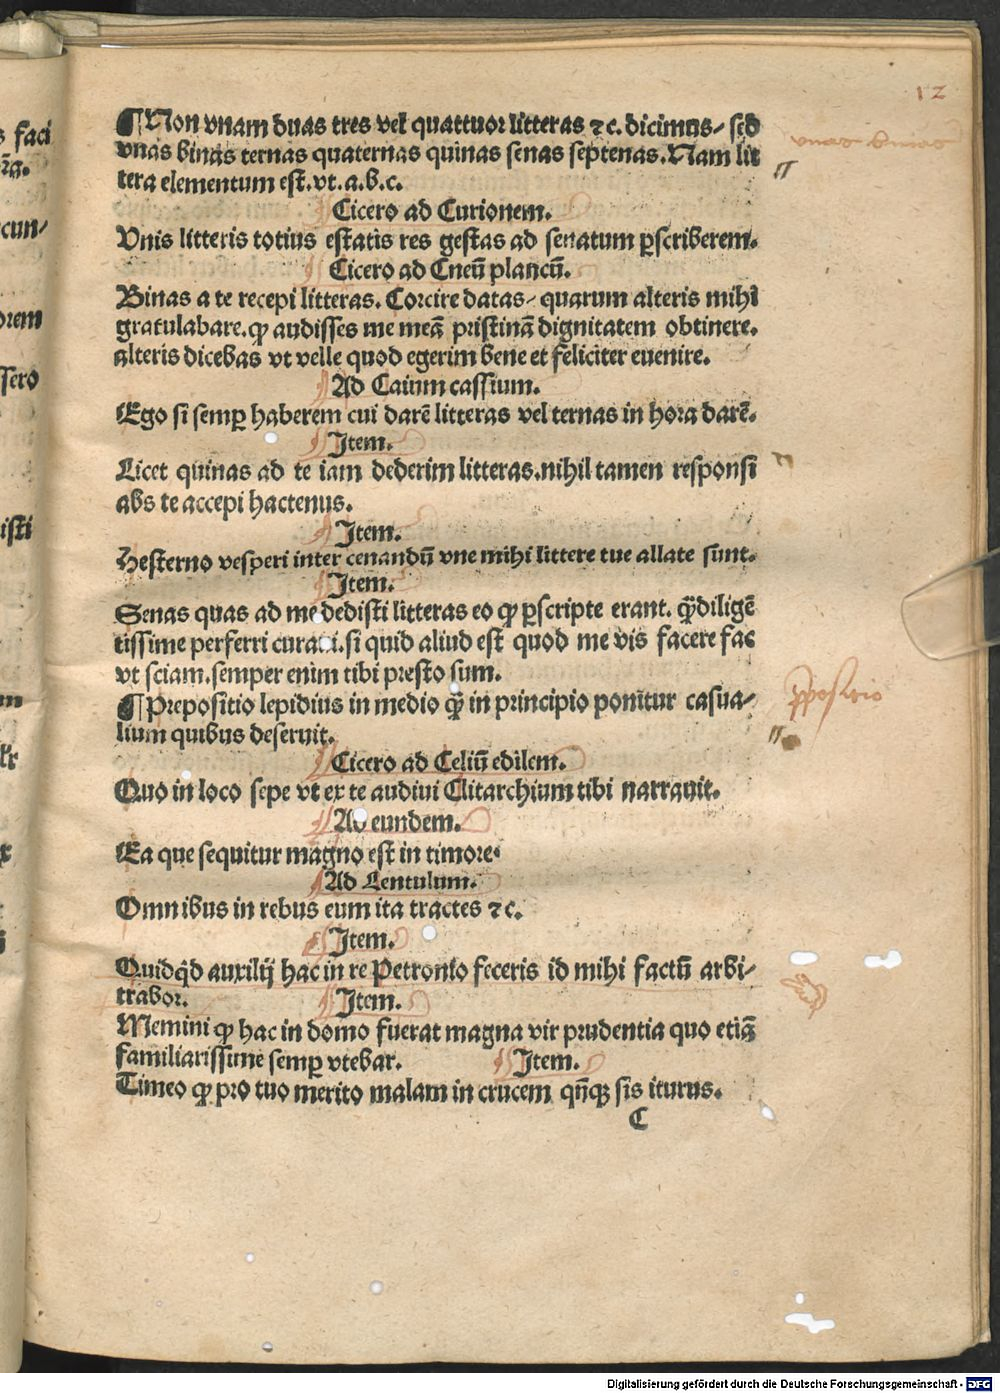 12
¶ Non vnam duas tres vel quattuor litteras ⁊c. dicimus/ sed
vnas binas ternas quaternas quinas senas septenas. Nam lit
tera elementum est. vt. a. b. c.
vnas binas
Cicero ad Curionem.
Vnis litteris totius estatis res gestas ad senatum ꝑscriberem.
Cicero ad Cneū plancū.
Binas a te recepi litteras. Corcire datas/ quarum alteris mihi
gratulabare. ꝙ audisses me meā pristinā dignitatem obtinere.
alteris dicebas vt velle quod egerim bene et feliciter euenire.
Ad Caium cassium.
Ego si semꝑ haberem cui darē litteras vel ternas in hora darē.
Item.
Licet quinas ad te iam dederim litteras. nihil tamen responsi
abs te accepi hactenus.
Item.
Hesterno vesperi inter cenandū vne mihi littere tue allate sunt.
Item.
Senas quas ad me dedisti litteras eo ꝙ ꝑscripte erant. q̄diligē
tissime perferri curaui. si quid aliud est quod me vis facere fac
vt sciam. semper enim tibi presto sum.
¶ Prepositio lepidius in medio q̄ in principio ponitur casua/
lium quibus deseruit.
Cicero ad Celiū edilem.
Quo in loco sepe vt ex te audiui Clitarchium tibi narrauit.
Ad eundem.
Ea que sequitur magno est in timore.
Ad Lentulum.
Omnibus in rebus eum ita tractes ⁊c.
Item.
Quidqd auxilij hac in re Petronio feceris id mihi factū arbi/
trabor. Item.
Memini ꝙ hac in domo fuerat magna vir prudentia quo etiā
familiarissime semꝑ vtebar. Item.
Timeo ꝙ pro tuo merito malam in crucem qn̄qꝫ sis iturus.
C
Digitalisierung gefördert durch die Deutsche Forschungsgemeinschaft - DFG